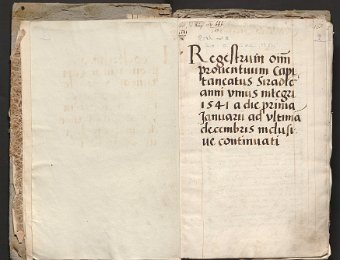 Regestrum om̅
proventuum Capi
taneatus Siradie
anni vnius integri
1541 a die prima
Januarii ad vltima
decembris inclusi
ue continuati